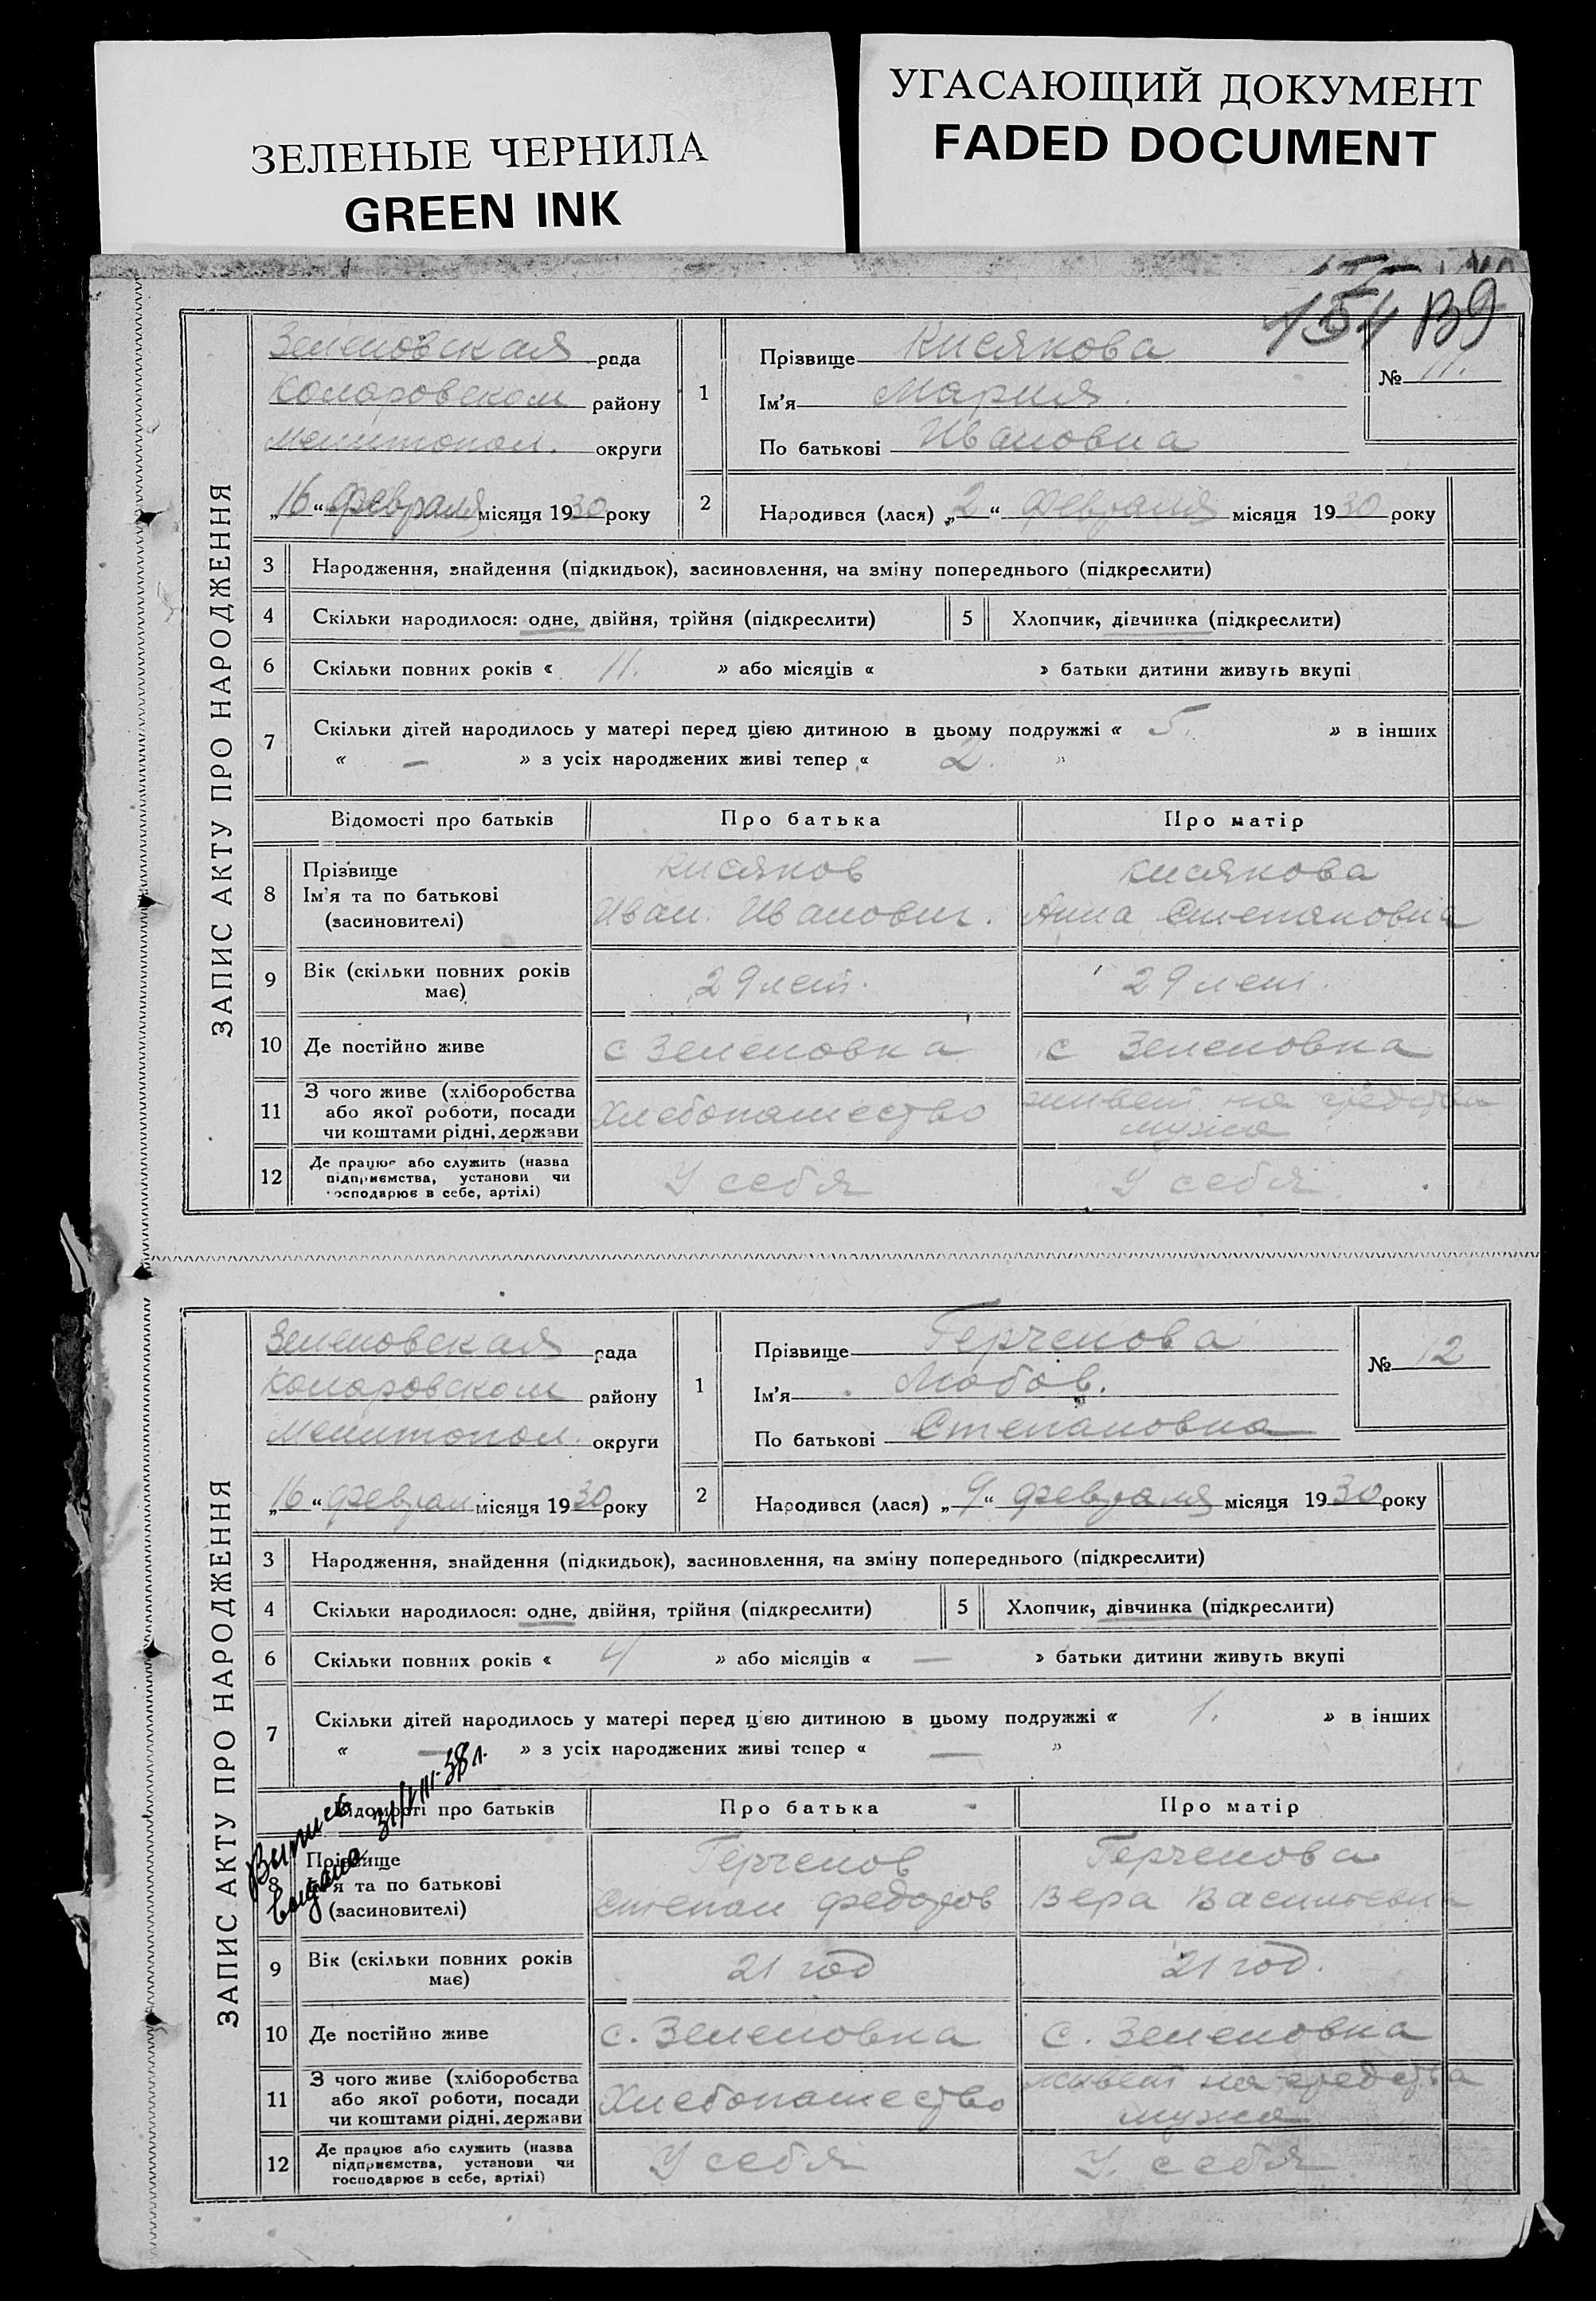 ЗЕЛЕНЫЕ ЧЕРНИЛА
GREEN INK
УГАСАЮЩИЙ ДОКУМЕНТ
FADED DOCUMENT
154 139
ЗАПИС АКТУ ПРО НАРОДЖЕННЯ
Зеленовская рада
Коларовском району
Мелитопол. округи
„16“ февраля місяця 1930 року
1 Прізвище Кисякова
Ім'я Мария.
По батькові Ивановна
№ 11.
2 Народився (лася) „2“ февраля місяця 1930 року
3 Народження, знайдення (підкидьок), засиновлення, на зміну попереднього (підкреслити)
4 Скільки народилося: одне, двійня, трійня (підкреслити) 5 Хлопчик, дівчинка (підкреслити)
6 Скільки повних років « 11. » або місяців « » батьки дитини живуть вкупі
7 Скільки дітей народилось у матері перед цією дитиною в цьому подружжі « 5. » в інших
« — » з усіх народжених живі тепер « 2. »
Відомості про батьків Про батька Про матір
8 Прізвище Кисяков Кисякова
Ім'я та по батькові Иван. Иванович. Анна Степановна
(засиновителі)
9 Вік (скільки повних років має) 29 лет. 29 лет.
10 Де постійно живе с Зеленовка с Зеленовка
11 З чого живе (хліборобства живет на средства
або якої роботи, посади Хлебопашество мужа
чи коштами рідні, держави
12 Де працює або служить (назва
підприємства, установи чи У себя У себя
господарює в себе, артілі)
ЗАПИС АКТУ ПРО НАРОДЖЕННЯ
Зеленовская рада
Коларовском району
Мелитопол. округи
„16“ феврал місяця 1930 року
1 Прізвище Герченова
Ім'я Любов.
По батькові Степановна
№ 12
2 Народився (лася) „9“ февраля місяця 1930 року
3 Народження, знайдення (підкидьок), засиновлення, на зміну попереднього (підкреслити)
4 Скільки народилося: одне, двійня, трійня (підкреслити) 5 Хлопчик, дівчинка (підкреслити)
6 Скільки повних років « 4 » або місяців « — » батьки дитини живуть вкупі
7 Скільки дітей народилось у матері перед цією дитиною в цьому подружжі « 1. » в інших
« — » з усіх народжених живі тепер « — »
31/VIII-38 л.
Відомості про батьків Про батька Про матір
8 Прізвище Герченов Герченова
Ім'я та по батькові Степан Федоров Вера Васильевн
(засиновителі)
9 Вік (скільки повних років має) 21 год 21 год.
10 Де постійно живе с. Зеленовка с. Зеленовка
11 З чого живе (хліборобства живет на средства
або якої роботи, посади Хлебопашество мужа
чи коштами рідні, держави
12 Де працює або служить (назва
підприємства, установи чи У себя У. себя
господарює в себе, артілі)